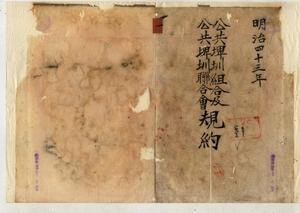 明治四十三年
公共埤圳組合及
公共埤圳聯合會規約